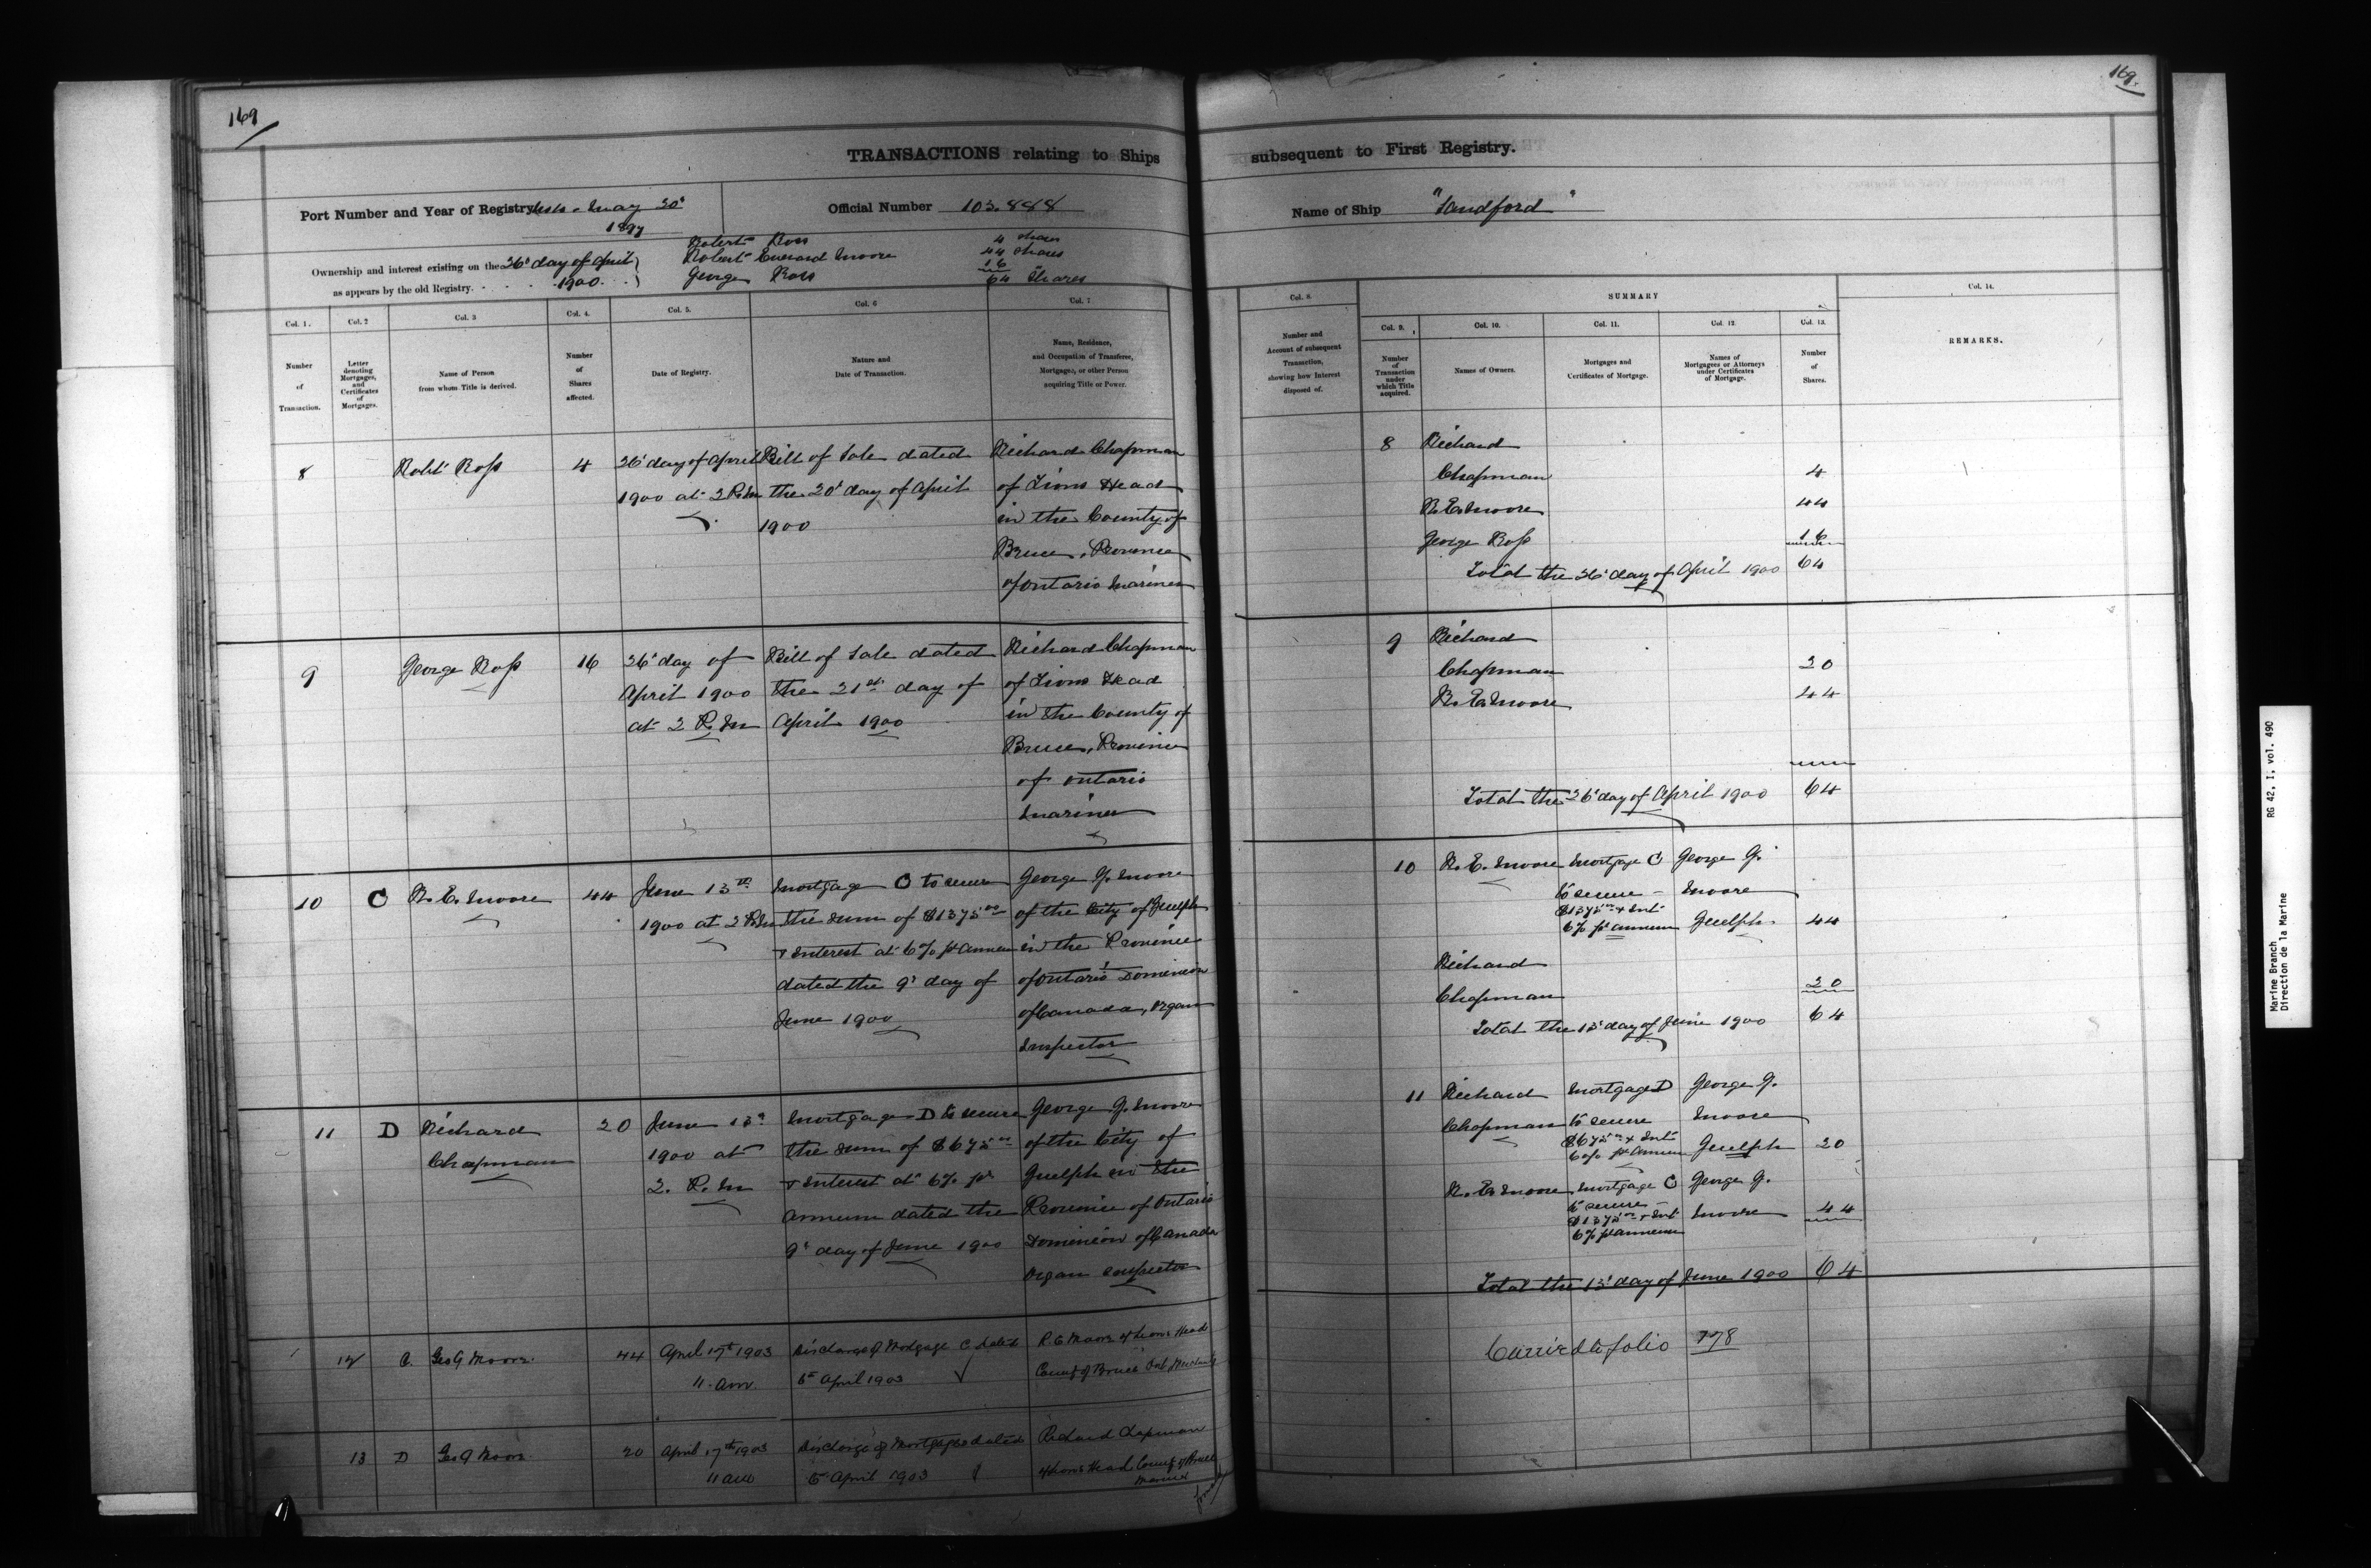 169
169.
TRANSACTIONS relating to Ships
subsequent to First Registry.
Port Number and Year of Registry May 30th
1897
Official Number 103.888
Name of Ship "Sandford"
Ownership and interest existing on the 26th day of April
1900
as appears by the old Registry.
Robert Ross 4 shares
Robert Everard Moore 44 shares
George Ross 16 "
64 Shares
Col. 1.
Col. 2
Col. 3
Col. 4.
Col. 5.
Col. 6
Col. 7
Number
of
Transaction.
Letter
denoting
Mortgages,
and
Certificates
of
Mortgages.
Name of Person
from whom Title is derived.
Number
of
Shares
affected.
Date of Registry.
Nature and
Date of Transaction.
Name, Residence,
and Occupation of Transferee,
Mortgagee, or other Person
acquiring Title or Power.
Col. 8.
Number and
Account of subsequent
Transaction,
showing how Interest
disposed of.
SUMMARY
Col. 9.
Col. 10.
Col. 11.
Col. 12
Col. 13.
Col. 14.
Number
of
Transaction
under
which Title
acquired.
Names of Owners.
Mortgages and
Certificates of Mortgage.
Names of
Mortgagees or Attorneys
under Certificates
of Mortgage.
Number
of
Shares.
REMARKS.
8
Robt Ross
4
26th day of April
1900 at 2 P.M
Bill of Sale dated
the 20th day of April
1900
Richard Chapman
of Lions Head
in the County of
Bruce, Province
of Ontario Mariner
9
George Ross
16
26th day of
April 1900
at 2 P.M
Bill of Sale dated
the 21st day of
April 1900
Richard Chapman
of Lions Head
in the County of
Bruce, Province
of Ontario
Mariner
10
C
R. E. Moore
44
June 13th
1900 at 2 P.M
Mortgage C to secure
the sum of $1375 00
& Interest at 6% pr annum
dated the 9th day of
June 1900
George G. Moore
of the City of Guelph
in the Province
of Ontario Dominion
of Canada, Organ
Inspector
11
D
Richard
Chapman
20
June 13th
1900 at
2. P. M
Mortgage D to secure
the sum of $675 00
& Interest at 6% pr
annum dated the
9th day of June 1900
George G. Moore
of the City of
Guelph in the
Province of Ontario
Dominion of Canada
Organ Inspector
12
C.
Geo G Moore
44
April 17th 1903
11 am.
Discharge of Mortgage C dated
6th April 1903
R. E Moore of Lions Head
County of Bruce Ont
13
D
Geo G Moore
20
April 17th 1903
11 am
Discharge of Mortgage D dated
6th April 1903
Richard Chapman
of Lions Head County of Bruce
Mariner
8
Richard
Chapman 4
R. E. Moore 44
George Ross 16
Total the 26th day of April 1900 64
9
Richard
Chapman 20
R. E. Moore 44
Total the 26th day of April 1900 64
10
R. E. Moore
Mortgage C
to secure
$1375 00 & Int
6% pr annum
George G.
Moore
Guelph
44
Richard
Chapman 20
Total the 13th day of June 1900 64
11
Richard
Chapman
Mortgage D
to secure
$675 00 & Int
6% pr annum
George G.
Moore
Guelph
20
R. E. Moore
Mortgage C
to secure
$1375 00 & Int
6% pr annum
George G.
Moore
44
Total the 13th day of June 1900 64
Carried to folio 178
RG 42, I, vol. 490
Marine Branch
Direction de la Marine